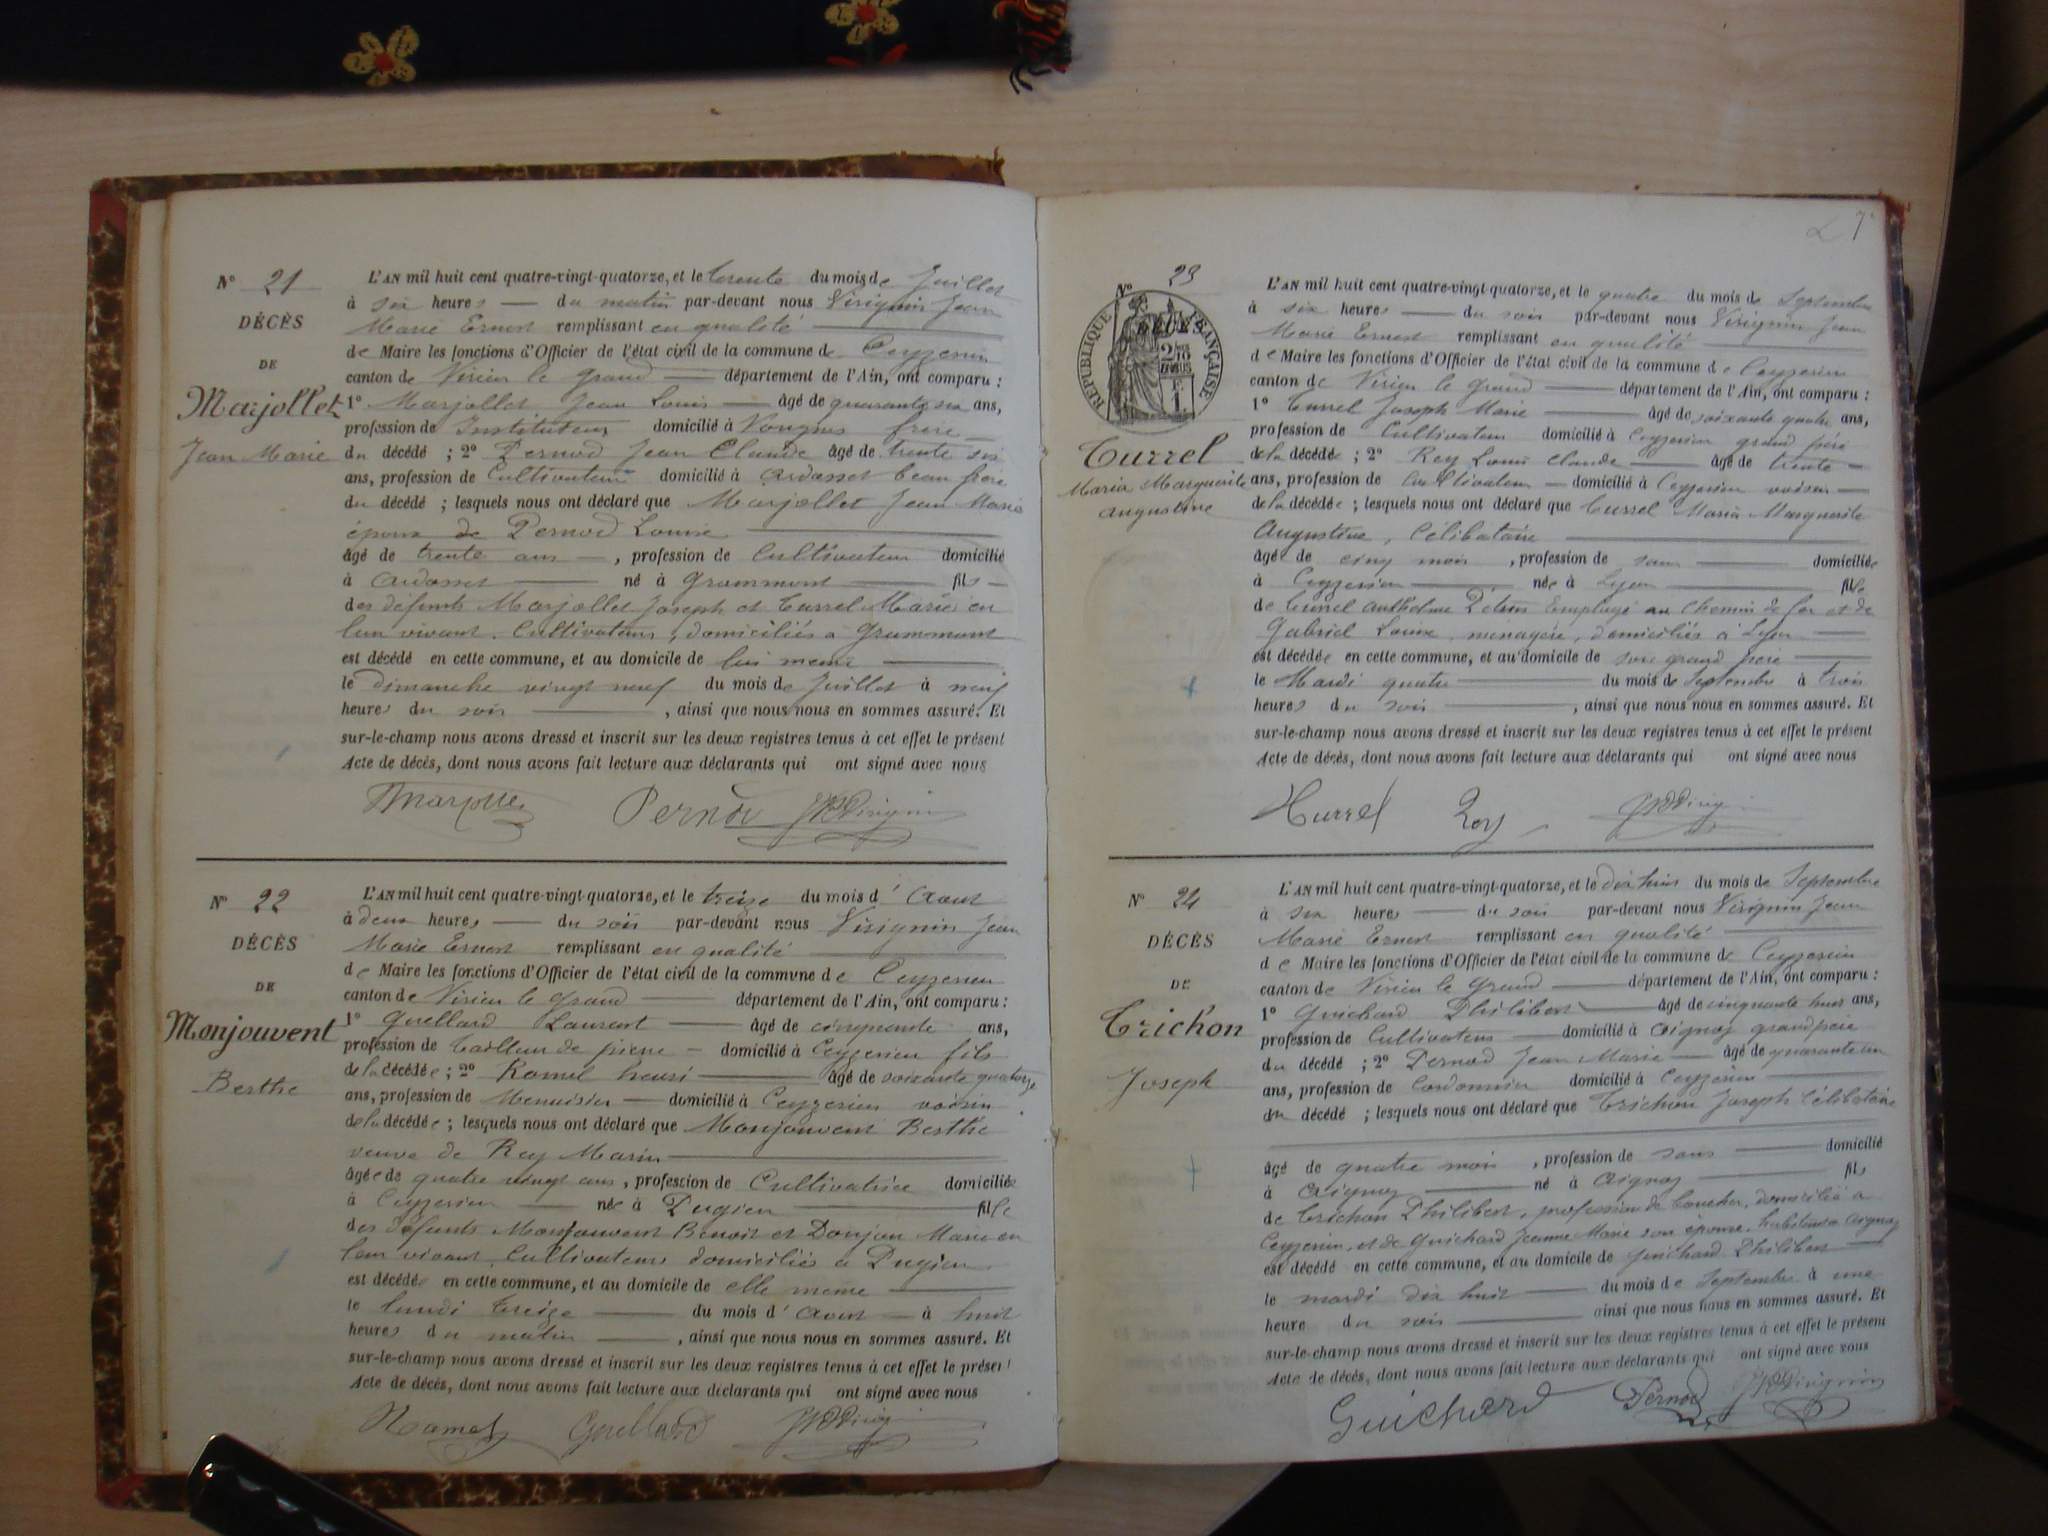 N° 21
DÉCÈS
DE
Marjollet
Jean Marie
L'AN mil huit cent quatre-vingt-quatorze, et le trente du mois de Juillet
à six heures du matin par-devant nous Virignin Jean
Marie Ernest remplissant en qualité
de Maire les fonctions d'Officier de l'état civil de la commune de Ceyzerieu
canton de Virieu le Grand département de l'Ain, ont comparu :
1° Marjollet Jean Louis âgé de quarante six ans,
profession de Instituteur domicilié à Vongnes frère
du décédé ; 2° Pernod Jean Claude âgé de trente six
ans, profession de Cultivateur domicilié à Ardosset beau frère
du décédé ; lesquels nous ont déclaré que Marjollet Jean Marie
époux de Pernod Louise
âgé de trente ans, profession de Cultivateur domicilié
à Ardosset né à Grammont fils
des défunts Marjollet Joseph et Turrel Marie en
leur vivant, Cultivateurs, domiciliés à Grammont
est décédé en cette commune, et au domicile de lui meme
le dimanche vingt neuf du mois de Juillet à neuf
heures du soir, ainsi que nous nous en sommes assuré. Et
sur-le-champ nous avons dressé et inscrit sur les deux registres tenus à cet effet le présent
Acte de décès, dont nous avons fait lecture aux déclarants qui ont signé avec nous
Pernod
N° 22
DÉCÈS
DE
Monjouvent
Berthe
L'AN mil huit cent quatre-vingt-quatorze, et le treize du mois d' Aout
à deux heures du soir par-devant nous Virignin Jean
Marie Ernest remplissant en qualité
de Maire les fonctions d'Officier de l'état civil de la commune de Ceyzerieu
canton de Virieu le Grand département de l'Ain, ont comparu :
1° Guellard Laurent âgé de cinquante ans,
profession de Tailleur de pierre domicilié à Ceyzerieu fils
de la décédée ; 2° Ramel henri âgé de soixante quatorze
ans, profession de Menuisier domicilié à Ceyzerieu voisin
de la décédée ; lesquels nous ont déclaré que Monjouvent Berthe
veuve de Rey Marin
âgée de quatre vingt ans, profession de Cultivatrice domiciliée
à Ceyzerieu née à Pugieu fille
des défunts Monjouvent Benoit et Donjon Marie en
leur vivant, Cultivateurs domiciliés à Pugieu
est décédée en cette commune, et au domicile de elle meme
le lundi treize du mois d' Aout à huit
heures du matin, ainsi que nous nous en sommes assuré. Et
sur-le-champ nous avons dressé et inscrit sur les deux registres tenus à cet effet le présent
Acte de décès, dont nous avons fait lecture aux déclarants qui ont signé avec nous
Ramel Guellard
N° 23
RÉPUBLIQUE FRANÇAISE
DÉCÈS
Turrel
Maria Marguerite
Augustine
L'AN mil huit cent quatre-vingt-quatorze, et le quatre du mois de Septembre
à six heures du soir par-devant nous Virignin Jean
Marie Ernest remplissant en qualité
de Maire les fonctions d'Officier de l'état civil de la commune de Ceyzerieu
canton de Virieu le Grand département de l'Ain, ont comparu :
1° Turrel Joseph Marie âgé de soixante quatre ans,
profession de Cultivateur domicilié à Ceyzerieu grand père
de la décédée ; 2° Rey Louis Claude âgé de trente
ans, profession de Cultivateur domicilié à Ceyzerieu voisin
de la décédée ; lesquels nous ont déclaré que Turrel Maria Marguerite
Augustine, Célibataire
âgé de cinq mois, profession de sans domiciliée
à Ceyzerieu née à Lyon fille
de Turrel Anthelme Employé au Chemin de fer et de
Gabriel Louise, ménagère, domiciliés à Lyon
est décédée en cette commune, et au domicile de son grand père
le Mardi quatre du mois de Septembre à trois
heures du soir, ainsi que nous nous en sommes assuré. Et
sur-le-champ nous avons dressé et inscrit sur les deux registres tenus à cet effet le présent
Acte de décès, dont nous avons fait lecture aux déclarants qui ont signé avec nous
Turrel Rey
N° 24
DÉCÈS
DE
Trichon
Joseph
L'AN mil huit cent quatre-vingt-quatorze, et le dix huit du mois de Septembre
à six heures du soir par-devant nous Virignin Jean
Marie Ernest remplissant en qualité
de Maire les fonctions d'Officier de l'état civil de la commune de Ceyzerieu
canton de Virieu le Grand département de l'Ain, ont comparu :
1° Guichard Philibert âgé de cinquante huit ans,
profession de Cultivateur domicilié à Aignoz grand père
du décédé ; 2° Pernod Jean Marie âgé de quarante un
ans, profession de Cordonnier domicilié à Ceyzerieu
du décédé ; lesquels nous ont déclaré que Trichon Joseph Célibataire
âgé de quatre mois, profession de sans domicilié
à Aignoz né à Aignoz fils
de Trichon Philibert, profession de boucher, domicilié à
Ceyzerieu, et de Guichard Jeanne Marie son épouse, Aignoz
est décédé en cette commune, et au domicile de Guichard Philibert
le mardi dix huit du mois de Septembre à une
heure du soir ainsi que nous nous en sommes assuré. Et
sur-le-champ nous avons dressé et inscrit sur les deux registres tenus à cet effet le présent
Acte de décès, dont nous avons fait lecture aux déclarants qui ont signé avec nous
Guichard Pernod